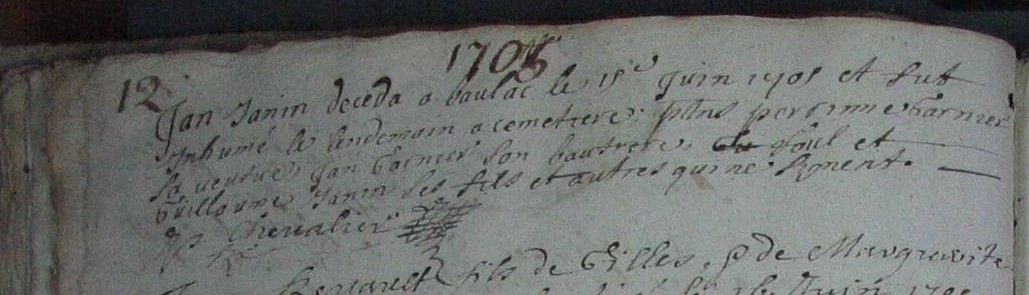 1705
12
Jan Janin deceda a baulac le 15e juin 1705 et fut
Inhumé le lendemain a cemetiere. pnts perrinne Garnier
sa veufve, Jan Garnier son baufrere, foul et
Guillaume Janin ses fils et autres qui ne signent.
Chevalier
Renault fils de Gilles, p de Marguerite
Juin